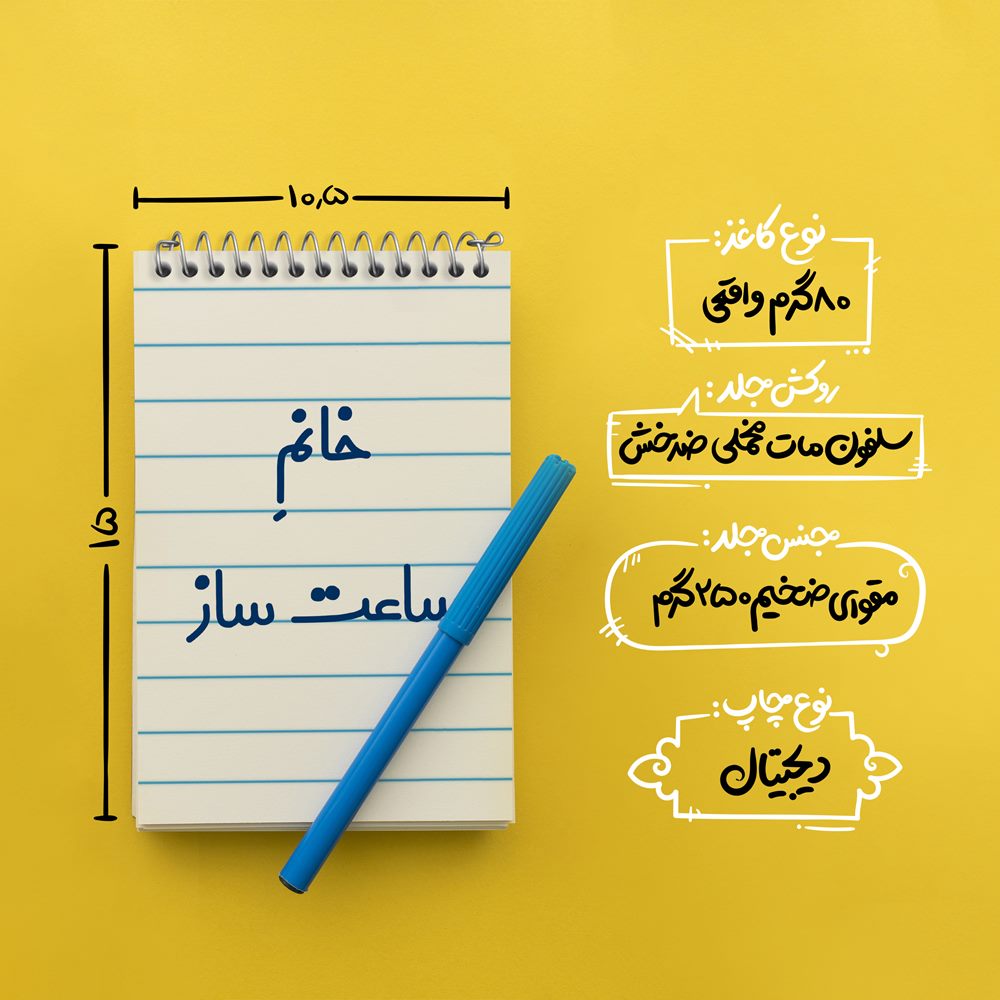 ۱۰٫۵
۱۵
خانمِ
ساعت ساز
نوع کاغذ:
۸۰گرم واقعی
روکش جلد:
سلفون مات مخملی ضدخش
جنس جلد:
مقوای ضخیم ۲۵۰گرم
نوع چاپ:
دیجیتال